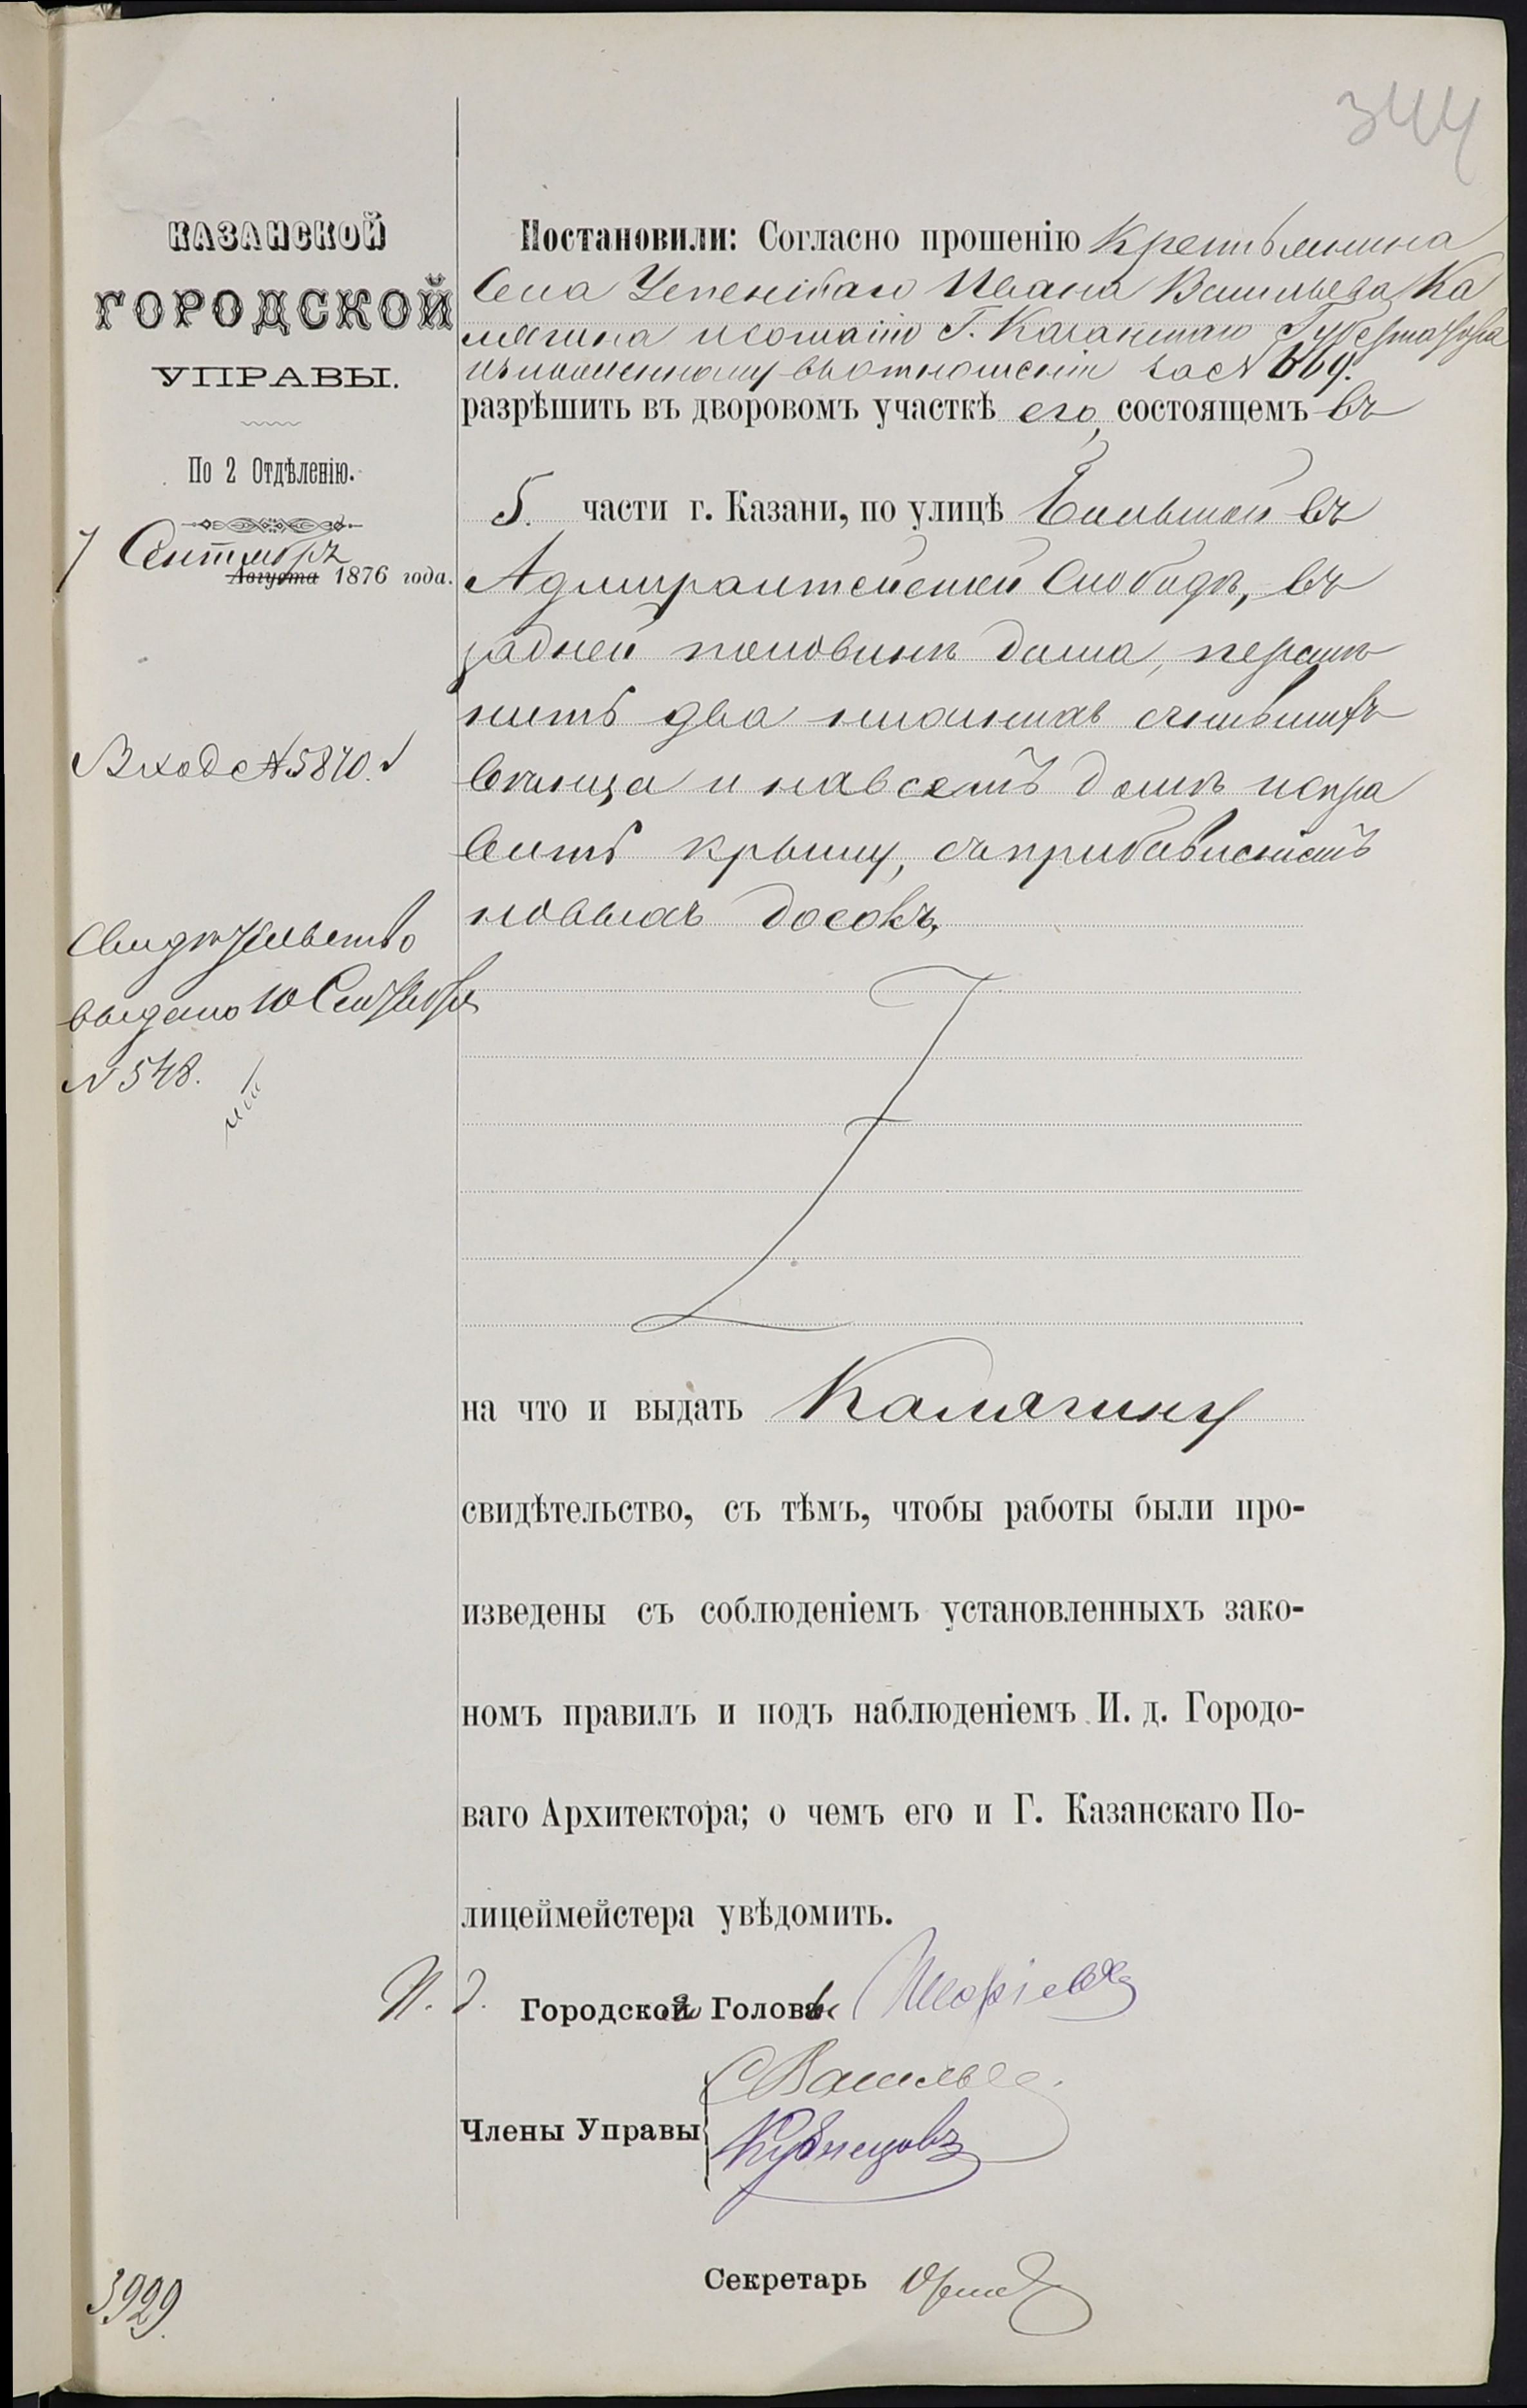 344
КАЗАНСКОЙ
ГОРОДСКОЙ
УПРАВЫ.
По 2 Отдѣленію.
7 Сентября
Августа 1876 года.
Вход № 5840.
Свидѣтельство
выдано 10 Сентября
№ 548.
Постановили: Согласно прошенію Крестьянина
Села Успенскаго Ивана Васильева Ка
мягина и согласію Г. Казанскаго Губернатора
изложенному въ отношеніи за №
разрѣшить въ дворовомъ участкѣ его, состоящемъ въ
5. части г. Казани, по улицѣ Большой въ
Адмиралтейской Слободѣ, въ
задней половинѣ дома, перемѣ
нить два сгнившихъ
вѣнца и на всемъ домѣ испра
вить крышу, съ прибавленіемъ
новыхъ досокъ,
на что и выдать Камягину
свидѣтельство, съ тѣмъ, чтобы работы были про-
изведены съ соблюденіемъ установленныхъ зако-
номъ правилъ и подъ наблюденіемъ И. д. Городо-
ваго Архитектора; о чемъ его и Г. Казанскаго По-
лицеймейстера увѣдомить.
И. д. Городской Головы
Члены Управы
С Васильев
Кузнецовъ
Секретарь
3929.